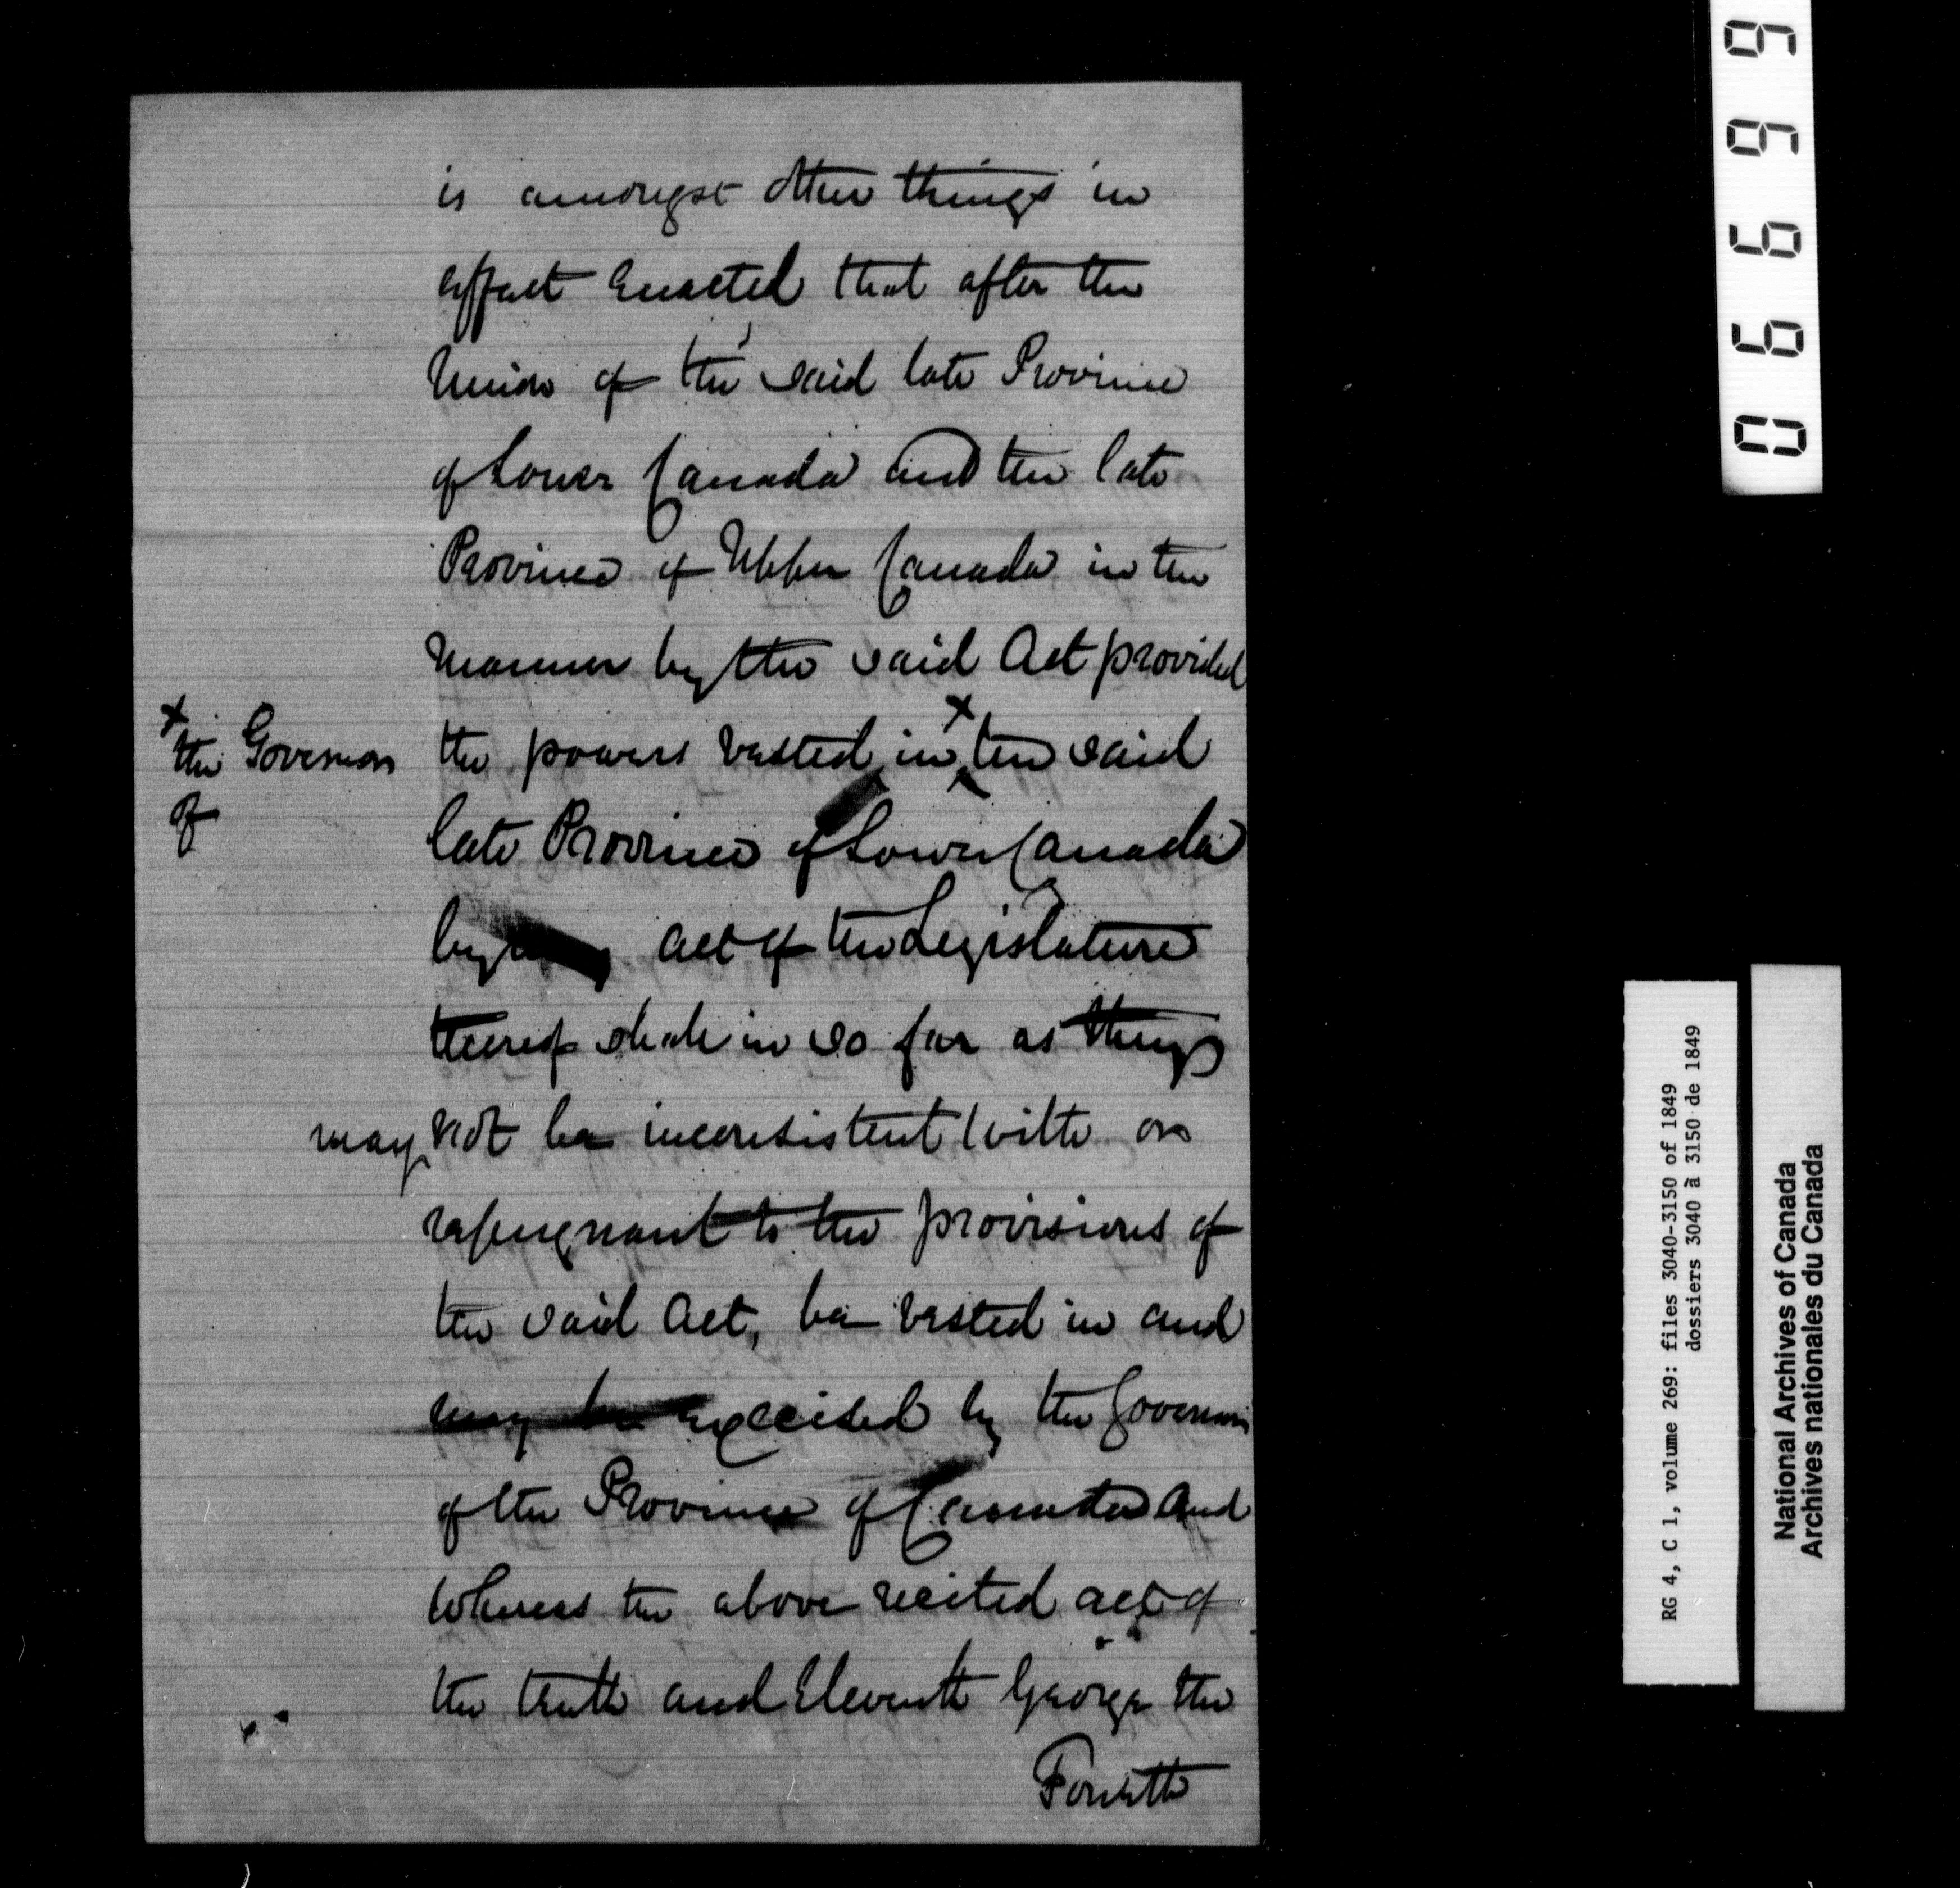 is amongst other things in
effect Enacted that after the
Union of the said late Province
of Lower Canada and the late
Province of Upper Canada in the
manner by the said Act provided
the powers vested in x the said
x the Governor
of
late Province of Lower Canada
by act of the Legislature
thereof shall in so far as they
may not be inconsistent with or
repugnant to the provisions of
the said Act, be vested in and
may be Excecised by the Governor
of the Province of Canada and
Whereas the above recited act of
the tenth and Eleventh George the
Fourth
06699
RG 4, C 1, volume 269: files 3040-3150 of 1849
dossiers 3040 à 3150 de 1849
National Archives of Canada
Archives nationales du Canada